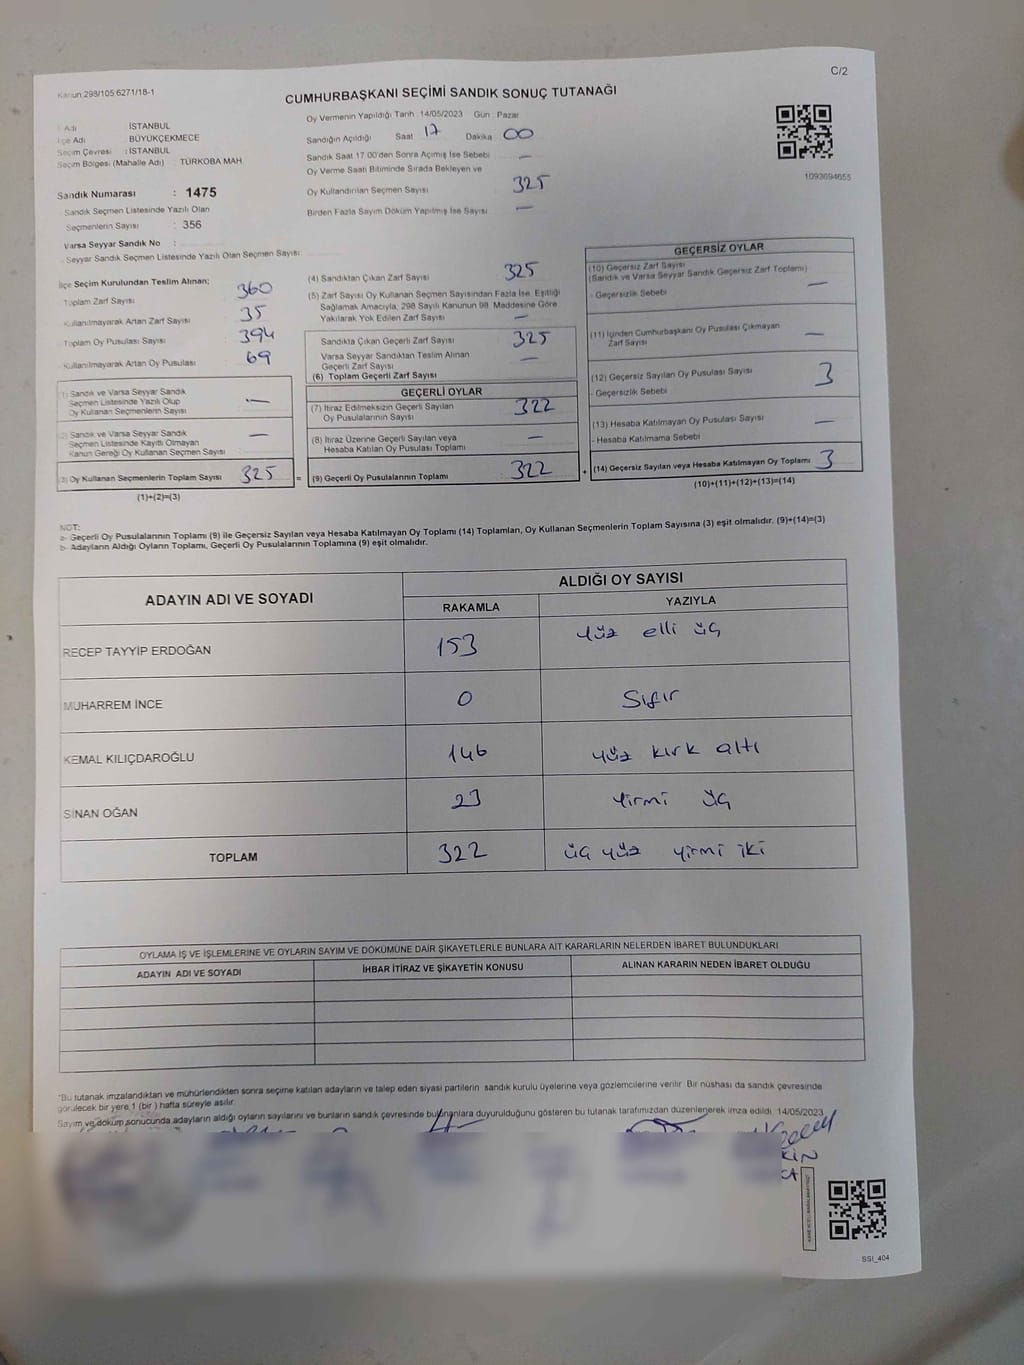 C/2
Kanun:298/105:6271/18-1
CUMHURBAŞKANI SEÇİMİ SANDIK SONUÇ TUTANAĞI
İl Adı : İSTANBUL
İlçe Adı : BÜYÜKÇEKMECE
Seçim Çevresi : İSTANBUL
Seçim Bölgesi (Mahalle Adı) : TÜRKOBA MAH
Sandık Numarası : 1475
Sandık Seçmen Listesinde Yazılı Olan
Seçmenlerin Sayısı : 356
Varsa Seyyar Sandık No :
Seyyar Sandık Seçmen Listesinde Yazılı Olan Seçmen Sayısı:
Oy Vermenin Yapıldığı Tarih :14/05/2023 Gün : Pazar
Sandığın Açıldığı Saat 17 Dakika 00
Sandık Saat 17.00'den Sonra Açımış İse Sebebi —
Oy Verme Saati Bitiminde Sırada Bekleyen ve
Oy Kullandırılan Seçmen Sayısı 325
Birden Fazla Sayım Döküm Yapılmış İse Sayısı —
1093694655
İlçe Seçim Kurulundan Teslim Alınan;
Toplam Zarf Sayısı 360
Kullanılmayarak Artan Zarf Sayısı 35
Toplam Oy Pusulası Sayısı 394
Kullanılmayarak Artan Oy Pusulası 69
(1) Sandık ve Varsa Seyyar Sandık
Seçmen Listesinde Yazılı Olup
Oy Kullanan Seçmenlerin Sayısı —
(2) Sandık ve Varsa Seyyar Sandık
Seçmen Listesinde Kayıtlı Olmayan
Kanun Gereği Oy Kullanan Seçmen Sayısı —
(3) Oy Kullanan Seçmenlerin Toplam Sayısı 325 =
(1)+(2)=(3)
(4) Sandıktan Çıkan Zarf Sayısı 325
(5) Zarf Sayısı Oy Kullanan Seçmen Sayısından Fazla İse, Eşitliği
Sağlamak Amacıyla, 298 Sayılı Kanunun 98. Maddesine Göre
Yakılarak Yok Edilen Zarf Sayısı —
Sandıkta Çıkan Geçerli Zarf Sayısı 325
Varsa Seyyar Sandıktan Teslim Alınan
Geçerli Zarf Sayısı —
(6) Toplam Geçerli Zarf Sayısı
GEÇERLİ OYLAR
(7) İtiraz Edilmeksizin Geçerli Sayılan
Oy Pusulalarının Sayısı 322
(8) İtiraz Üzerine Geçerli Sayılan veya
Hesaba Katılan Oy Pusulası Toplamı —
(9) Geçerli Oy Pusulalarının Toplamı 322 +
GEÇERSİZ OYLAR
(10) Geçersiz Zarf Sayısı
(Sandık ve Varsa Seyyar Sandık Geçersiz Zarf Toplamı) —
- Geçersizlik Sebebi
(11) İçinden Cumhurbaşkanı Oy Pusulası Çıkmayan
Zarf Sayısı —
(12) Geçersiz Sayılan Oy Pusulası Sayısı 3
- Geçersizlik Sebebi
(13) Hesaba Katılmayan Oy Pusulası Sayısı —
- Hesaba Katılmama Sebebi
(14) Geçersiz Sayılan veya Hesaba Katılmayan Oy Toplamı 3
(10)+(11)+(12)+(13)=(14)
NOT:
a- Geçerli Oy Pusulalarının Toplamı (9) ile Geçersiz Sayılan veya Hesaba Katılmayan Oy Toplamı (14) Toplamları, Oy Kullanan Seçmenlerin Toplam Sayısına (3) eşit olmalıdır. (9)+(14)=(3)
b- Adayların Aldığı Oyların Toplamı, Geçerli Oy Pusulalarının Toplamına (9) eşit olmalıdır.
ADAYIN ADI VE SOYADI
ALDIĞI OY SAYISI
RAKAMLA YAZIYLA
RECEP TAYYİP ERDOĞAN 153 yüz elli üç
MUHARREM İNCE 0 Sıfır
KEMAL KILIÇDAROĞLU 146 yüz kırk altı
SİNAN OĞAN 23 yirmi üç
TOPLAM 322 üç yüz yirmi iki
OYLAMA İŞ VE İŞLEMLERİNE VE OYLARIN SAYIM VE DÖKÜMÜNE DAİR ŞİKAYETLERLE BUNLARA AİT KARARLARIN NELERDEN İBARET BULUNDUKLARI
ADAYIN ADI VE SOYADI İHBAR İTİRAZ VE ŞİKAYETİN KONUSU ALINAN KARARIN NEDEN İBARET OLDUĞU
*Bu tutanak imzalandıktan ve mühürlendikten sonra seçime katılan adayların ve talep eden siyasi partilerin sandık kurulu üyelerine veya gözlemcilerine verilir. Bir nüshası da sandık çevresinde
görülecek bir yere 1 (bir) hafta süreyle asılır.
Sayım ve döküm sonucunda adayların aldığı oyların sayılarını ve bunların sandık çevresinde bulunanlara duyurulduğunu gösteren bu tutanak tarafımızdan düzenlenerek imza edildi. 14/05/2023
SSI_404